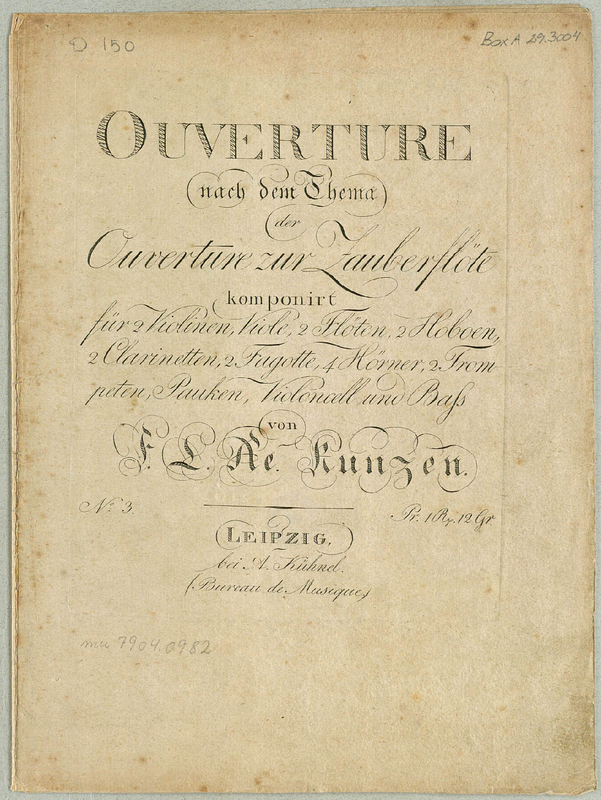 D 150
Box A 29.3004
OUVERTURE
(nach dem Thema)
der
Ouverture zur Zauberflöte
komponirt
für 2 Violinen, Viole, 2 Flöten, 2 Hoboen,
2 Clarinetten, 2 Fagotte, 4 Hörner, 2 Trom
peten, Pauken, Violoncell und Bass
von
F. L. Ae. Kunzen.
No. 3.
Pr. 1 Rz. 12 Gr
LEIPZIG,
bei A. Kühnel.
(Bureau de Musique)
mu 7904.0982